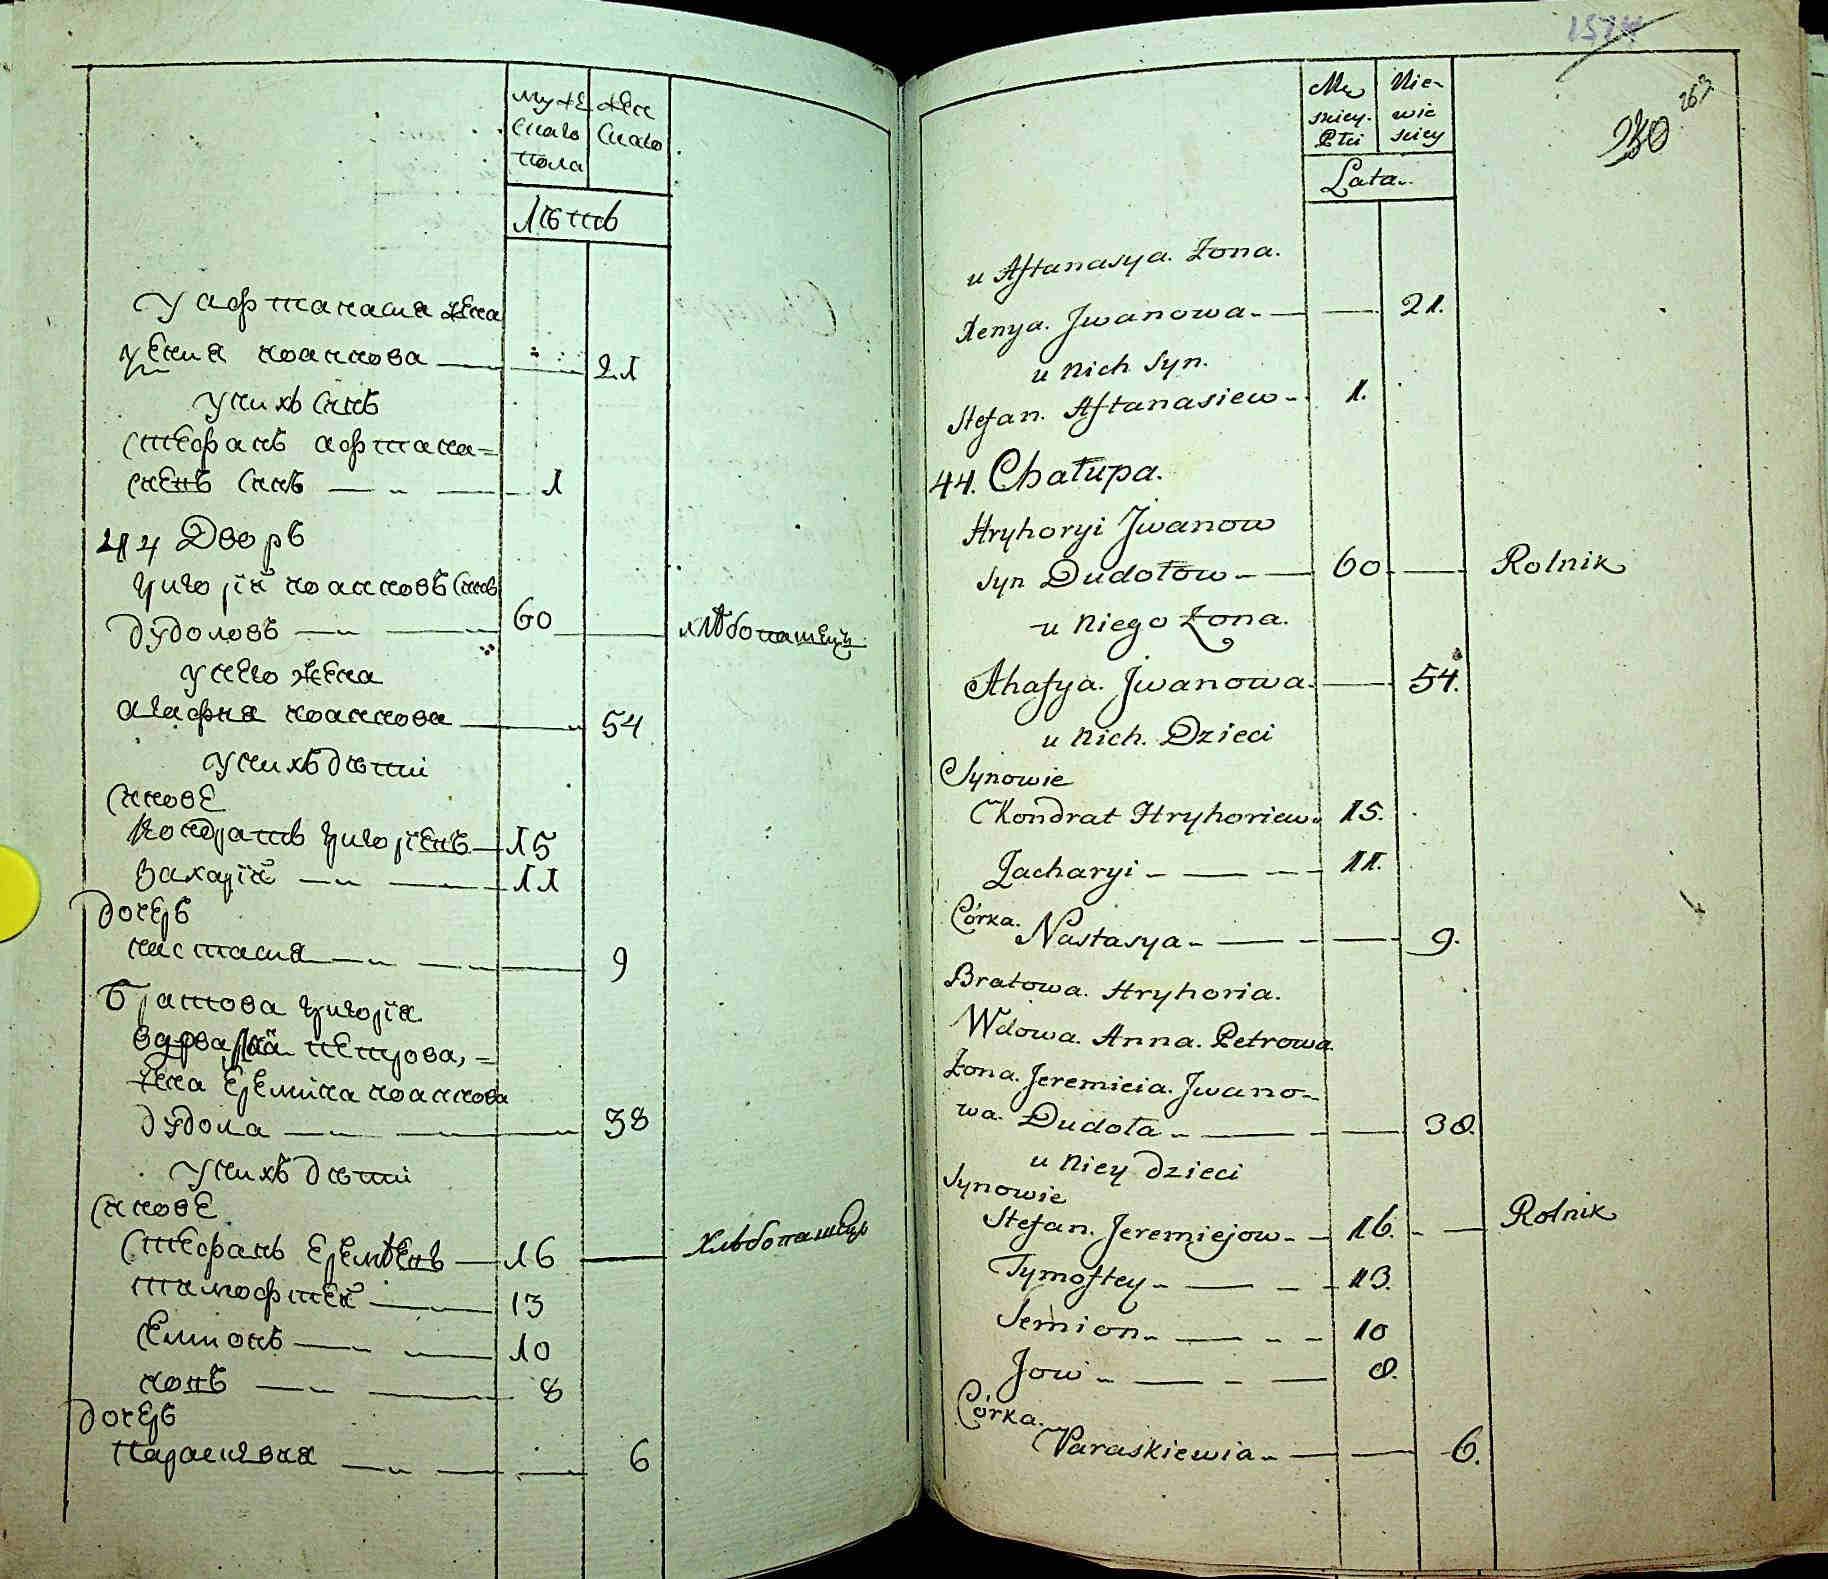 муже
скаго
пола
жен
скаго
лѣтъ
У афтанасия жена
ѯения иоаннова — 21
у нихъ синъ
стефанъ афтана-
сиевъ синъ — 1
44 Дворъ
григорій иоанновъ синъ
дудоловъ — 60 — хлѣбопашецъ
у него жена
агафия иоаннова — 54
у нихъ дѣти
синове
кондратъ григоріевъ — 15
захарій — 11
дочеръ
настасия — 9
Братова григорія
вдова анна петрова, =
жена еремѣя иоаннова
дудола — 38
у нихъ дѣти
синове
стефанъ еремѣевъ — 16 — хлѣбопашецъ
тимофтей — 13
семионъ — 10
иовъ — 8
дочеръ
параскевия — 6
1574
Mę
skiey.
Płci
Nie-
wie
skiey
230
263
Lata..
u Aftanasya. Żona.
Xenya. Jwanowa. — 21.
u nich Syn.
Stefan. Aftanasiew — 1.
44. Chałupa.
Hryhoryi Jwanow
syn Dudołow — 60 — Rolnik
u niego Żona.
Ahafya. Jwanowa. — 54.
u nich. Dzieci
Synowie
Kondrat Hryhoriew 15.
Zacharyi — 11.
Córka.
Nastasya — 9.
Bratowa. Hryhoria.
Wdowa. Anna. Petrowa.
Żona. Jeremieia. Jwano-
wa. Dudoła — 38.
u niey dzieci
Synowie
Stefan. Jeremiejow — 16. — Rolnik
Tymoftey — 13.
Semion — 10
Jow — 8.
Córka.
Paraskiewia — 6.